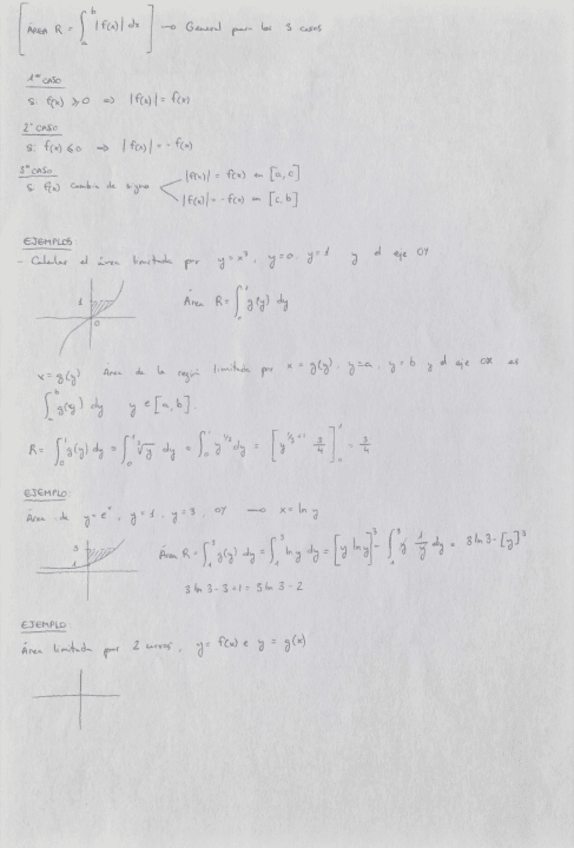 [ÁREA R = ∫_a^b |f(x)| dx] → General para los 3 casos
1er CASO
Si f(x) ≥ 0 ⇒ |f(x)| = f(x)
2º CASO
Si f(x) ≤ 0 ⇒ |f(x)| = - f(x)
3er CASO
Si f(x) cambia de signo
|f(x)| = f(x) en [a, c]
|f(x)| = - f(x) en [c, b]
EJEMPLOS:
- Calcular el área limitada por y = x³, y = 0, y = 1 y el eje OY
1
0
Área R = ∫_0^1 g(y) dy
x = g(y) Área de la región limitada por x = g(y), y = a, y = b y el eje OX es
∫_a^b g(y) dy y ∈ [a, b].
R = ∫_0^1 g(y) dy = ∫_0^1 ∛y dy = ∫_0^1 y^{1/3} dy = [y^{1/3 + 1} 3/4]_0^1 = 3/4
EJEMPLO:
Área de y = e^x, y = 1, y = 3, OY → x = ln y
3
1
Área R = ∫_1^3 g(y) dy = ∫_1^3 ln y dy = [y ln y]^3 - ∫_1^3 y 1/y dy = 3 ln 3 - [y]^3
3 ln 3 - 3 + 1 = 3 ln 3 - 2
EJEMPLO:
Área limitada por 2 curvas, y = f(x) e y = g(x)